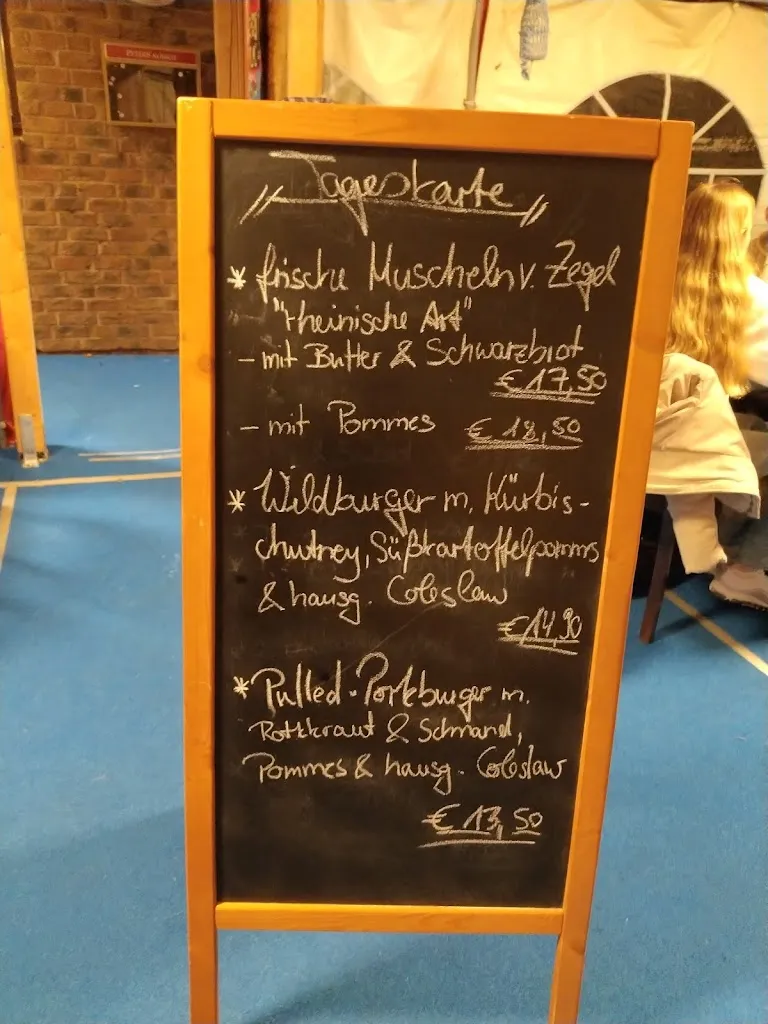 Tageskarte
* frische Muscheln v. Zegel
"rheinische Art"
- mit Butter & Schwarzbrot
€ 17,50
- mit Pommes € 18,50
* Wildburger m. Kürbis-
chutney, Süßkartoffelpomms
& hausg. Coleslaw
€ 14,90
* Pulled-Porkburger m.
Rotkraut & Schmand,
Pommes & hausg. Coleslaw
€ 13,50